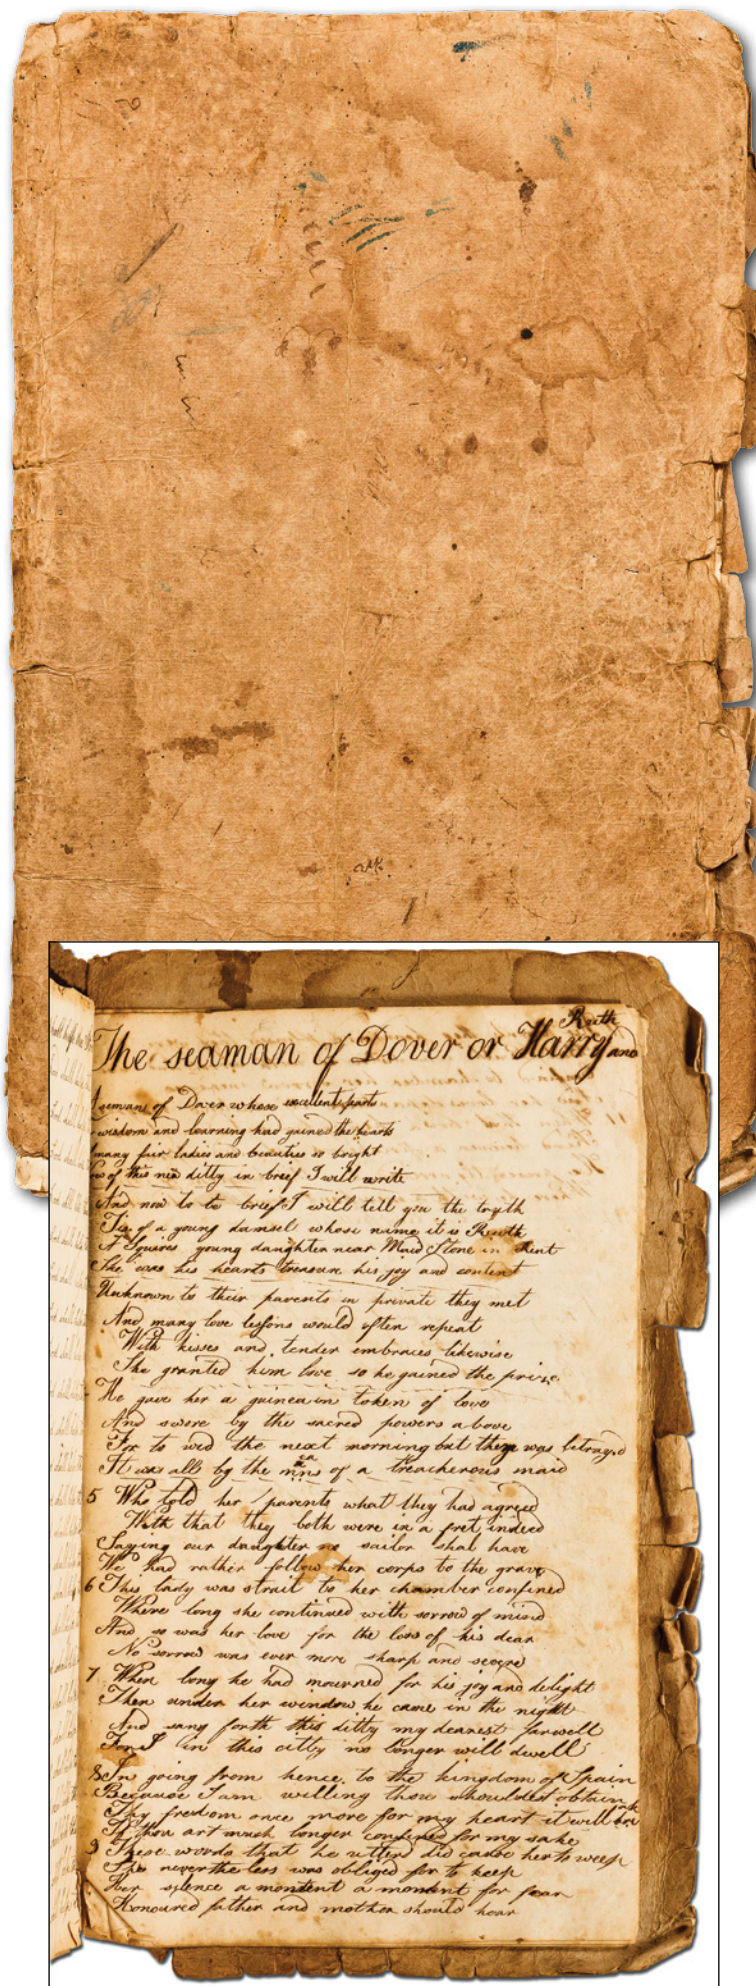 Reuth
The seaman of Dover or Harry and
seaman of Dover whose excellent parts
wisdom and learning had gained the hearts
many fair ladies and beauties so bright
of this new ditty in brief I will write
And now to be brief I will tell you the truth
Tis of a young damsel whose name it is Reuth
A Squires young daughter near Maid Stone in Kent
She was his hearts treasure his joy and content
Unknown to their parents in private they met
And many love lessons would often repeat
With kisses and tender embraces likewise
She granted him love so he gained the prize
He gave her a guinea in token of love
And swore by the sacred powers above
For to wed the next morning but they was betrayd
It was all by the of a treacherous maid
5 Who told her parents what they had agreed
With that they both were in a fret indeed
Saying our daughter no sailor shal have
We had rather follow her corps to the grave
6 This lady was strait to her chamber confined
Where long she continued with sorrow of mind
And so was her love for the loss of his dear
No sorrow was ever more sharp and severe
7 When long he had mourned for his joy and delight
Then under her window he came in the night
And sang forth this ditty my dearest farwell
For I in this citty no longer will dwell
8 In going from hence to the kingdom of Spain
Because I am willing thou shouldest obtain
Thy freedom once more for my heart it will brk
If thou art much longer confined for my sake
9 These words that he utterd did cause her to weep
She nevertheless was obliged for to keep
Her silence a moment a moment for fear
Honoured father and mother should hear